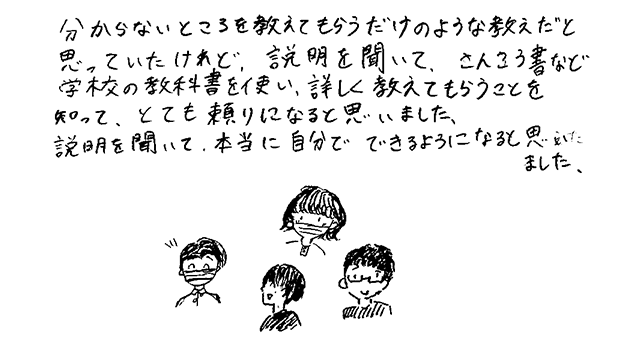 分からないところを教えてもらうだけのような教えだと
思っていたけれど、説明を聞いて、さんこう書など
学校の教科書を使い、詳しく教えてもらうことを
知って、とても頼りになると思いました、
説明を聞いて、本当に自分でできるようになると思い
ました、